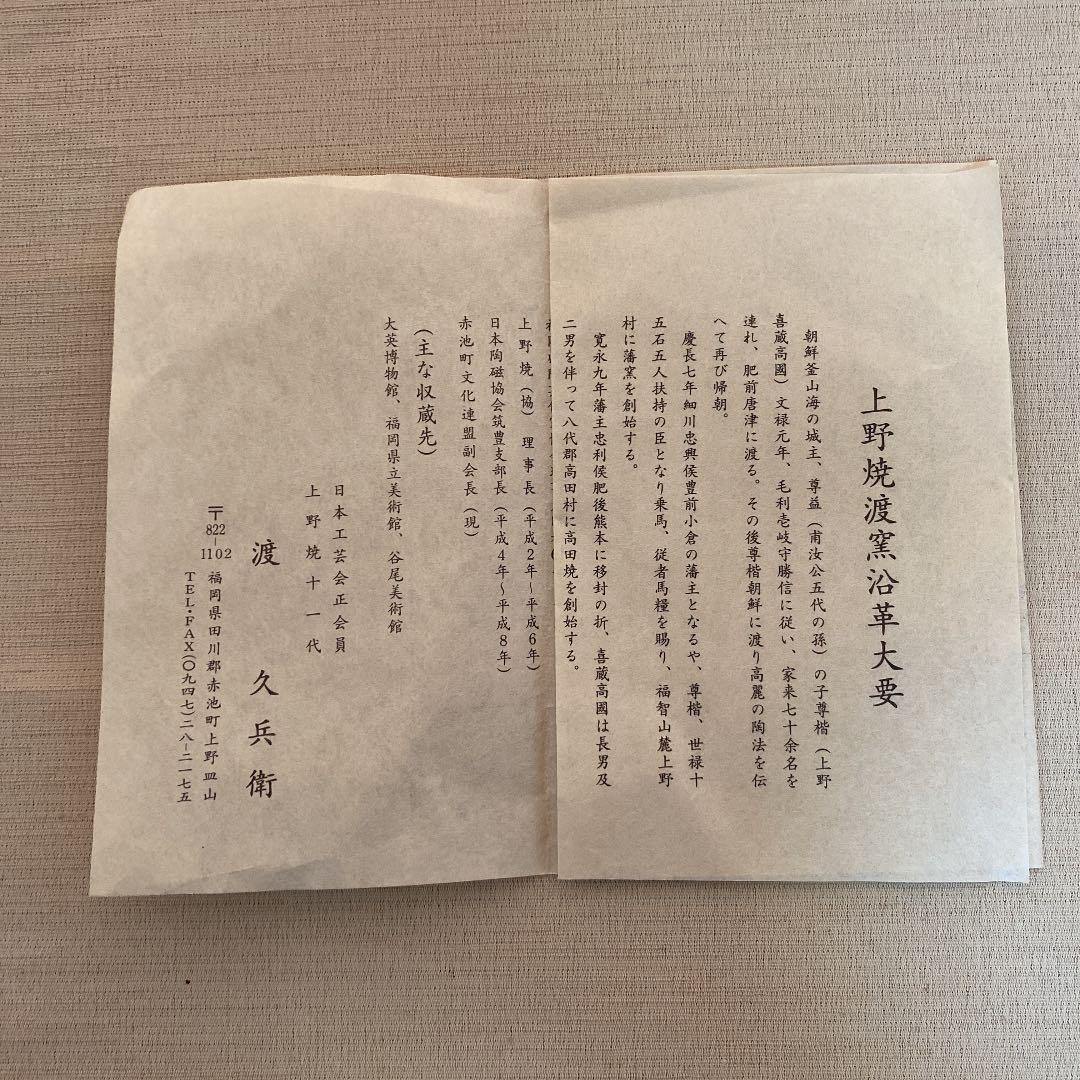 上野焼渡窯沿革大要
朝鮮釜山海の城主、尊益（甫汝公五代の孫）の子尊楷（上野
喜蔵高國）文禄元年、毛利壱岐守勝信に従い、家来七十余名を
連れ、肥前唐津に渡る。その後尊楷朝鮮に渡り高麗の陶法を伝
へて再び帰朝。
慶長七年細川忠興侯豊前小倉の藩主となるや、尊楷、世禄十
五石五人扶持の臣となり乗馬、従者馬糧を賜り、福智山麓上野
村に藩窯を創始する。
寛永九年藩主忠利侯肥後熊本に移封の折、喜蔵高國は長男及
二男を伴って八代郡高田村に高田焼を創始する。
上野焼（協）理事長（平成2年～平成6年）
日本陶磁協会筑豊支部長（平成4年～平成8年）
赤池町文化連盟副会長（現）
（主な収蔵先）
大英博物館、福岡県立美術館、谷尾美術館
日本工芸会正会員
上野焼十一代
渡 久兵衛
〒822-1102 福岡県田川郡赤池町上野皿山
TEL・FAX（〇九四七）二八-二一七五